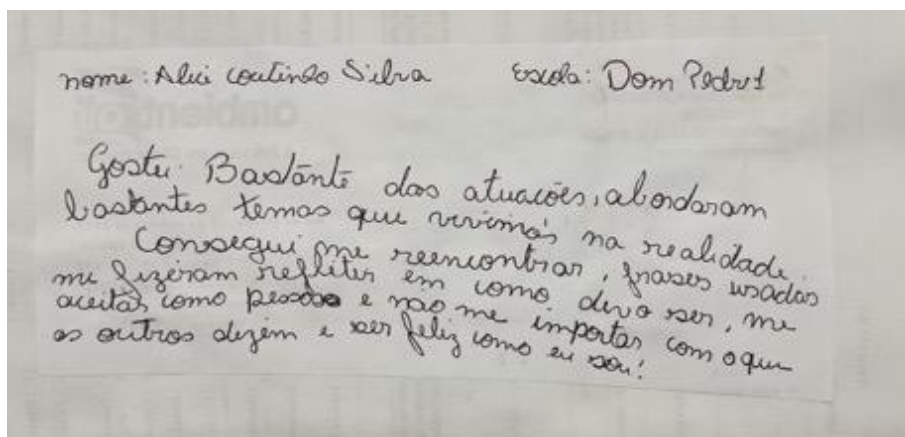 nome: Alici coutinho Silva Escola: Dom Pedro 1
Gostei Bastante das atuações, abordaram
bastantes temas que vivimos na realidade.
Consegui me reencontrar, frases usadas
me fizeram refletir em como devo ser, me
aceitar como pessoa e não me importar com o que
os outros dizem e ser feliz como eu sou!